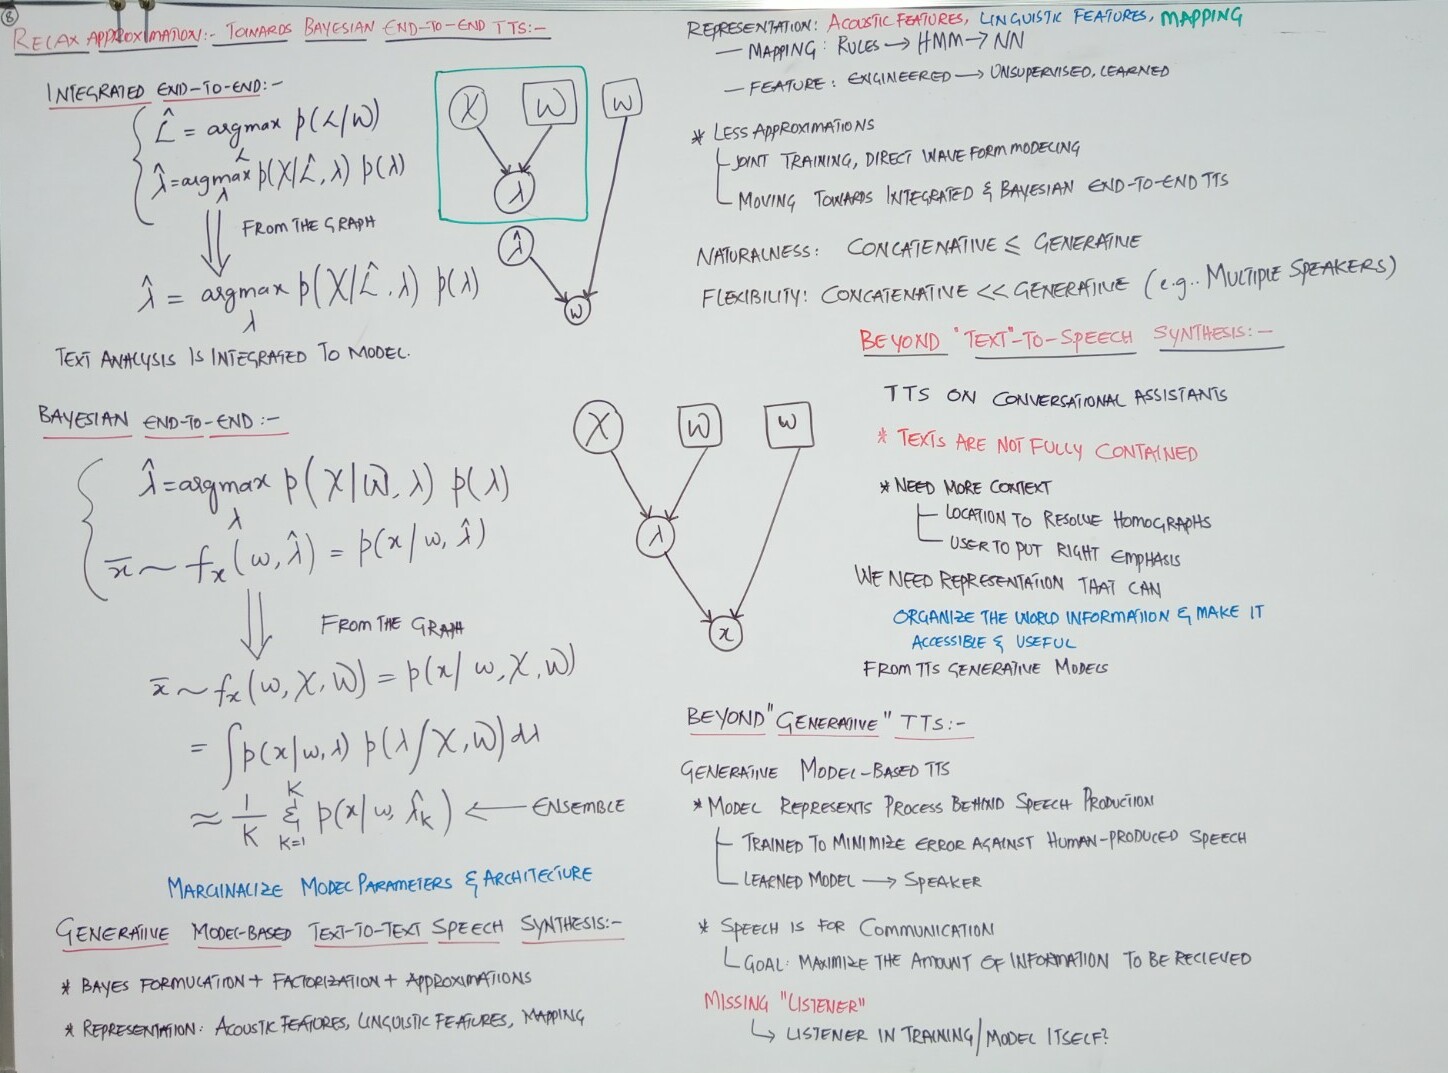 8
RELAX APPROXIMATION:- TOWARDS BAYESIAN END-TO-END TTS:-
INTEGRATED END-TO-END:-
L̂ = argmax p(L/W)
L
λ̂ = argmax p(X/L̂, λ) p(λ)
λ
FROM THE GRAPH
λ̂ = argmax p(X/L̂, λ) p(λ)
λ
TEXT ANALYSIS IS INTEGRATED TO MODEL.
X W w
λ
λ̂
w
BAYESIAN END-TO-END:-
λ̂ = argmax p(X|W, λ) p(λ)
λ
x̄ ~ fx(w, λ̂) = p(x/w, λ̂)
FROM THE GRAPH
x̄ ~ fx(w, X, W) = p(x/w, X, W)
= ∫p(x|w, λ) p(λ/X, W) dλ
≈ 1/K Σ p(x/w, λ̂k) ← ENSEMBLE
K
K=1
MARGINALIZE MODEL PARAMETERS & ARCHITECTURE
X W w
λ
x
GENERATIVE MODEL-BASED TEXT-TO-TEXT SPEECH SYNTHESIS:-
* BAYES FORMULATION + FACTORIZATION + APPROXIMATIONS
* REPRESENTATION: ACOUSTIC FEATURES, LINGUISTIC FEATURES, MAPPING
REPRESENTATION: ACOUSTIC FEATURES, LINGUISTIC FEATURES, MAPPING
— MAPPING: RULES → HMM → NN
— FEATURE: ENGINEERED → UNSUPERVISED, LEARNED
* LESS APPROXIMATIONS
JOINT TRAINING, DIRECT WAVE FORM MODELING
MOVING TOWARDS INTEGRATED & BAYESIAN END-TO-END TTS
NATURALNESS: CONCATENATIVE ≤ GENERATIVE
FLEXIBILITY: CONCATENATIVE << GENERATIVE (e.g.. MULTIPLE SPEAKERS)
BEYOND "TEXT"-TO-SPEECH SYNTHESIS:-
TTS ON CONVERSATIONAL ASSISTANTS
* TEXTS ARE NOT FULLY CONTAINED
* NEED MORE CONTEXT
LOCATION TO RESOLVE HOMOGRAPHS
USER TO PUT RIGHT EMPHASIS
WE NEED REPRESENTATION THAT CAN
ORGANIZE THE WORLD INFORMATION & MAKE IT
ACCESSIBLE & USEFUL
FROM TTS GENERATIVE MODELS
BEYOND "GENERATIVE" TTS:-
GENERATIVE MODEL-BASED TTS
* MODEL REPRESENTS PROCESS BEHIND SPEECH PRODUCTION
TRAINED TO MINIMIZE ERROR AGAINST HUMAN-PRODUCED SPEECH
LEARNED MODEL → SPEAKER
* SPEECH IS FOR COMMUNICATION
GOAL: MAXIMIZE THE AMOUNT OF INFORMATION TO BE RECIEVED
MISSING "LISTENER"
↳ LISTENER IN TRAINING/MODEL ITSELF?